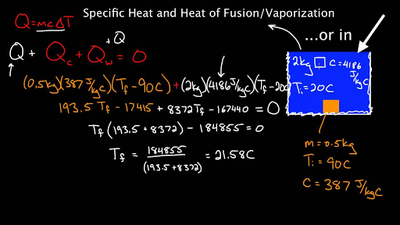 Specific Heat and Heat of Fusion/Vaporization
Q=mcΔT
+Q
Q + Qc + Qw = 0
...or in
2kg c=4186 J/kgC
Ti=20C
(0.5kg)(387 J/kgC)(Tf-90C)+(2kg)(4186 J/kgC)(Tf-20C
193.5Tf-17415+8372Tf-167440=0
Tf(193.5+8372)-184855=0
Tf=184855/(193.5+8372)=21.58C
m=0.5kg
Ti=90C
C=387 J/kgC